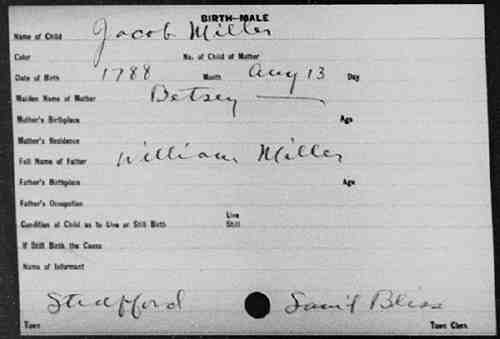 BIRTH—MALE
Name of Child Jacob Miller
Color No. of Child of Mother
Date of Birth 1788 Month Aug 13 Day
Maiden Name of Mother Betsey —
Mother's Birthplace Age
Mother's Residence
Full Name of Father William Miller
Father's Birthplace Age
Father's Occupation
Condition of Child as to Live or Still Birth Live Still
If Still Birth the Cause
Name of Informant
Strafford Sam'l Bliss
Town Town Clerk